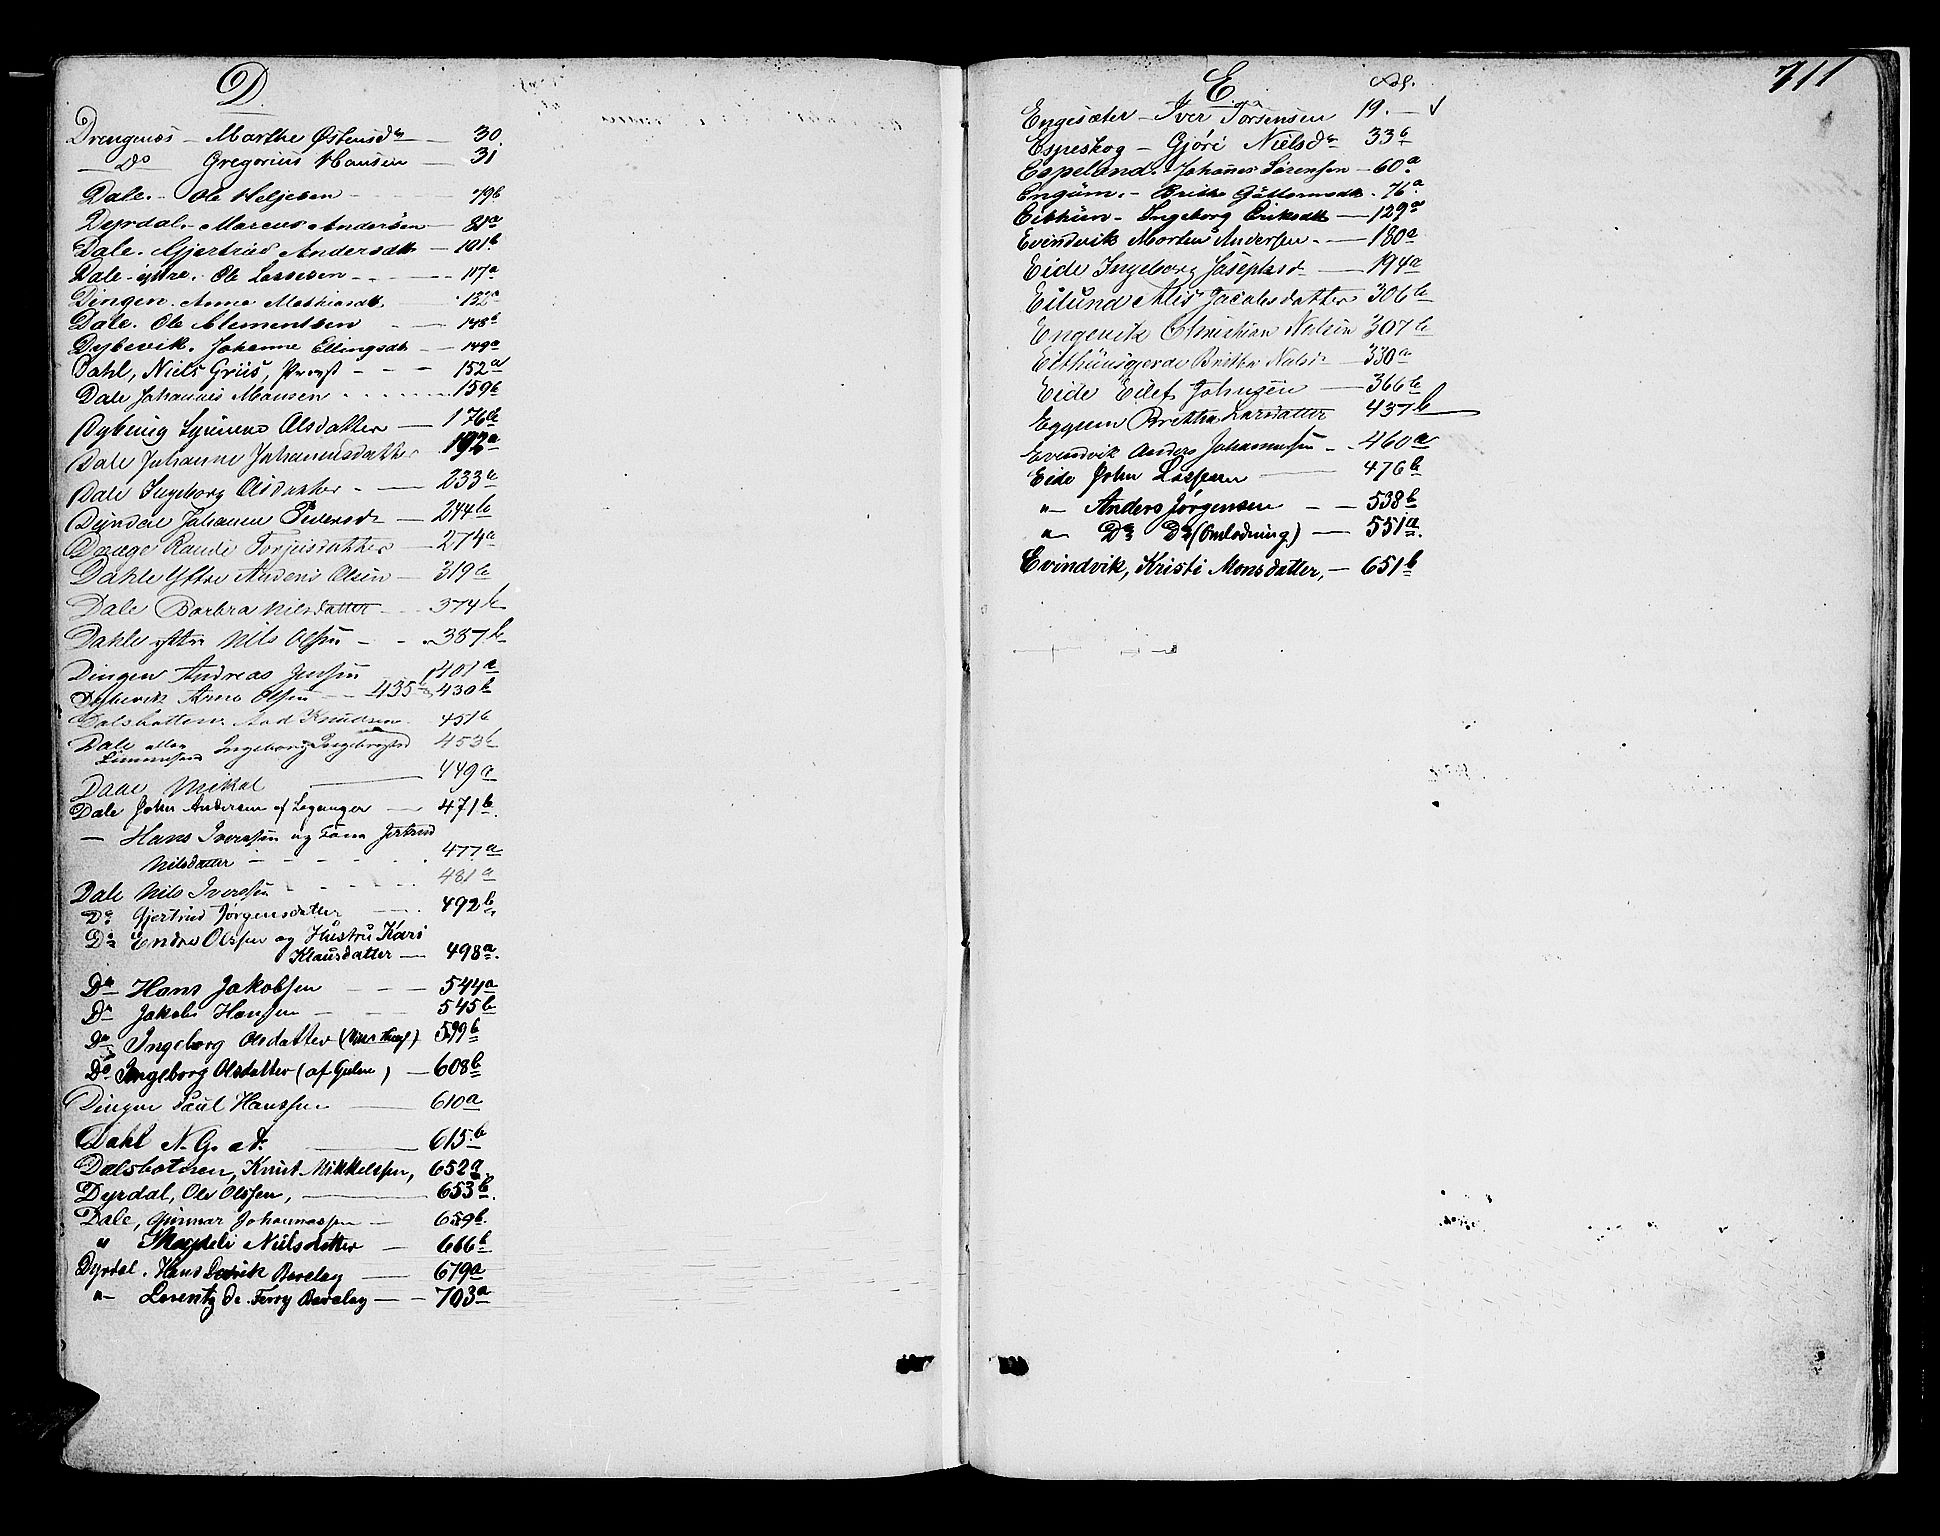 D
Drengenes - Marthe Østensdr 30.
Do Gregorius Hansen 31
Dale. - Ole Heljesen 79b
Dyrdal - Marcus Andersen 81a
Dale. Gjertrud Andersdtr 101b
Dale - ystre. Ole Lassesen 117a
Dingen. Anna Mathiasdtr 132a
Dale. Ole Clementsen 145b
Dybevik. Johanne Ellingsdtr 149a
Dahl, Niels Griis, Provst 152a
Dale Johannes Monsen 159b
Olsdatter 176b
Dale Johanne Johannesdatter 192a
Dale Ingeborg Olsdatter 233b
Johanne Pedersdr 244b
Drage Randi Torjusdatter 274a
Dahle Ystre Anders Olsen 319b
Dale Barbra Nilsdatter 374b
Dahle ystre Nils Olssen 387b
Dingen Andreas Jenssen 401a
Dybevik Arne Olsen 435b, 430b
Dalsbotten Knudsen 451b
Dale eller Ingeborg Ingebrigtsd 453b
Daae Mikkal 449a
Dale John Andersen af Leganger 471b.
— Hans Iverssen og Kone Jertrud
Nilsdatter 477a
Dale Nils Iverssen 481a
Do Gjertrud Jørgensdatter 492b
Do Endre Olssen og Hustru Kari
Klausdatter — 498a.
Do Hans Jakobsen 544a
Do Jakob Hansen 545b
Do Ingeborg Olsdatter 599b
Do Ingeborg Olsdatter (af Gulen) — 608b
Dingen Paul Hanssen 610a
Dahl N. G. 615b
Dalsbotnen, Knut Mikkelssen, 652a
Dyrdal, Ole Olssen, 653b.
Dale, Gunnar Johannessen 659b.
" Magdeli Nilsdatter — 666b
Dyrdal. Hans Barclay 679a
"— Lorentz de Ferry Barclay — 703a
711
E
Fol.
Engesæter - Iver Torsensen 19.
Espeskog - Gjøri Nielsdr 33b
Espeland. - Johanes Sørensen - 60a
Engüm. - Brithe Güttormsdtr. 76a
Eithün - Ingeborg Eriksdtr — 129a
Evindvik Morten Andersen. — 180a
Eide Ingeborg Josephsd — 194a
Eilund Jacobsdatter 306b
Engevik Christian Nilsen 307b
Eithünsgjerde Britha Nilsdr 330a
Eide Johnsen — 366b
Eggum Brithe Larsdatter 437b
Evendvik Anders Johannessen 460a
Eide John Lassesen 476b
"— Anders Jørgensen — 538b
"— Do Do (Omlodning) — 551a.
Evindvik, Kristi Monsdatter, — 651b